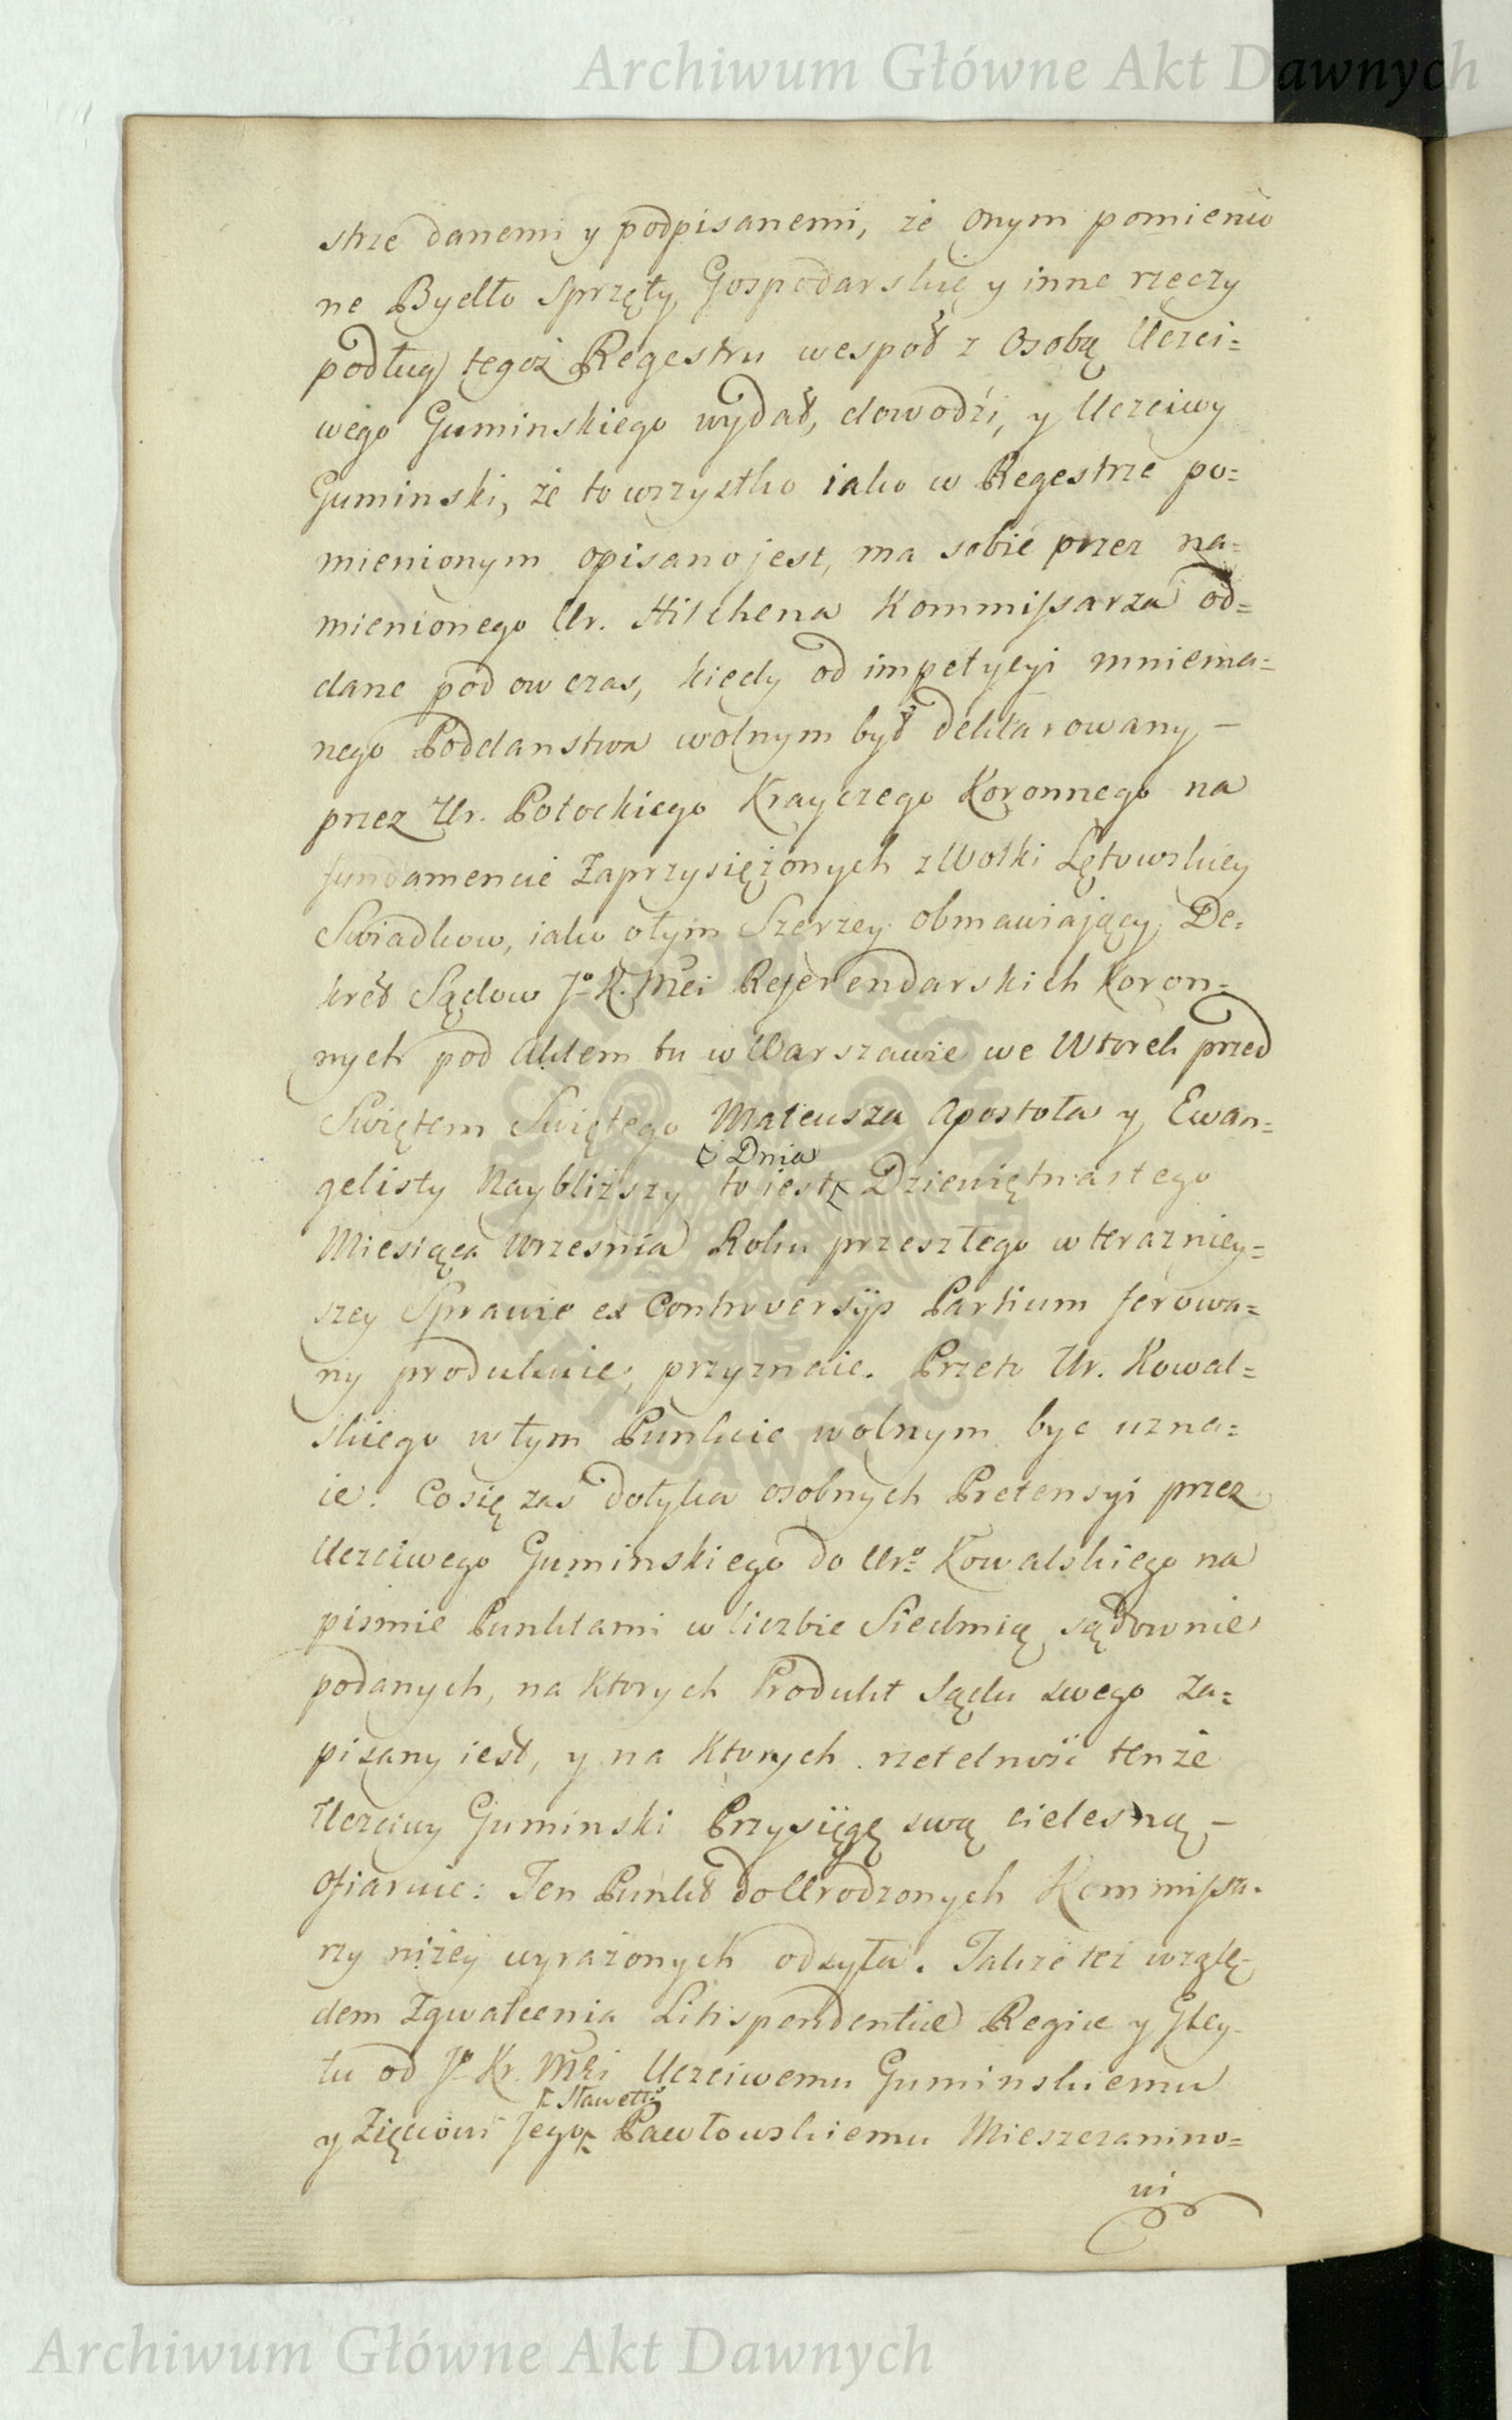 Archiwum Główne Akt Dawnych
strze danemi y podpisanemi, że onym pomienio
ne Bydło Sprzęty Gospodarskie y inne rzeczy
podług tegoż Regestru wespoł z Osobą Uczci=
wego Guminskiego wydał, dowodzi, y Uczciwy
Guminski, że to wszystko iako w Regestrze po=
mienionym opisano jest, ma sobie przez na=
mienionego Ur. Hilchena Kommissarza od=
dane pod ow czas, kiedy od impetycyi mniema=
nego Poddanstwa wolnym był deklarowany –
przez Ur. Potockiego Krayczego Koronnego na
fundamencie Zaprzysiężonych z Wolki Lętowskiey
Swiadkow, iako o tym Szerzey obmawiający De=
kret Sądow Jo K. Mci Referendarskich Koron=
nych pod Aktem tu w Warszawie we Wtorek przed
Swiętem Swiętego Mateusza Apostoła y Ewan=
gelisty Naybliższy to iest Dnia Dziewiętnastego
Miesiąca Wrzesnia Roku przeszłego w terazniey=
szey Sprawie ex Controversijs Partium ferowa=
ny produkuie, przyznaie. Przeto Ur. Kowal=
skiego w tym Punkcie wolnym byc uzna=
ie. Co się zas dotyka osobnych Pretensyi przez
Uczciwego Guminskiego do Uro= Kowalskiego na
pismie Punktami w liczbie Siedmią sądownie
podanych, na ktorych Produkt Sądu swego za=
pisany iest, y na ktorych rzetelność tenże
Uczciwy Guminski Przysięgę swą cielesną –
ofiaruie: Ten Punkt do Urodzonych Kommissa=
rzy niżey wyrażonych odsyła. Także też wzglę=
dem Zgwałcenia Litispendentiæ Regiæ y Gley=
tu od Jo Kr. Mci Uczciwemu Guminskiemu
y Zięciowi Jego Sławetto Pawłowskiemu Mieszczanino=
wi
Archiwum Główne Akt Dawnych